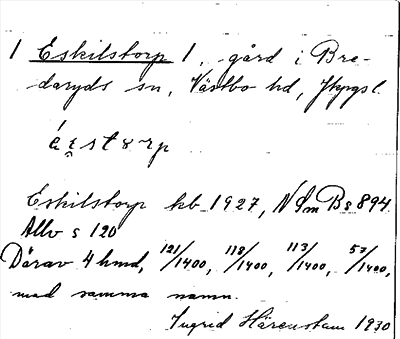 1 Eskilstorp 1. gård i Bre-
daryds sn, Västbo hd, Jkpgs l.
Eskilstorp kb 1927, N Sm Bs 894
Allv s 120
Därav 4 hmd, 121/1400, 118/1400, 113/1400, 53/1400,
med samma namn.
Ingrid Härenstam 1930